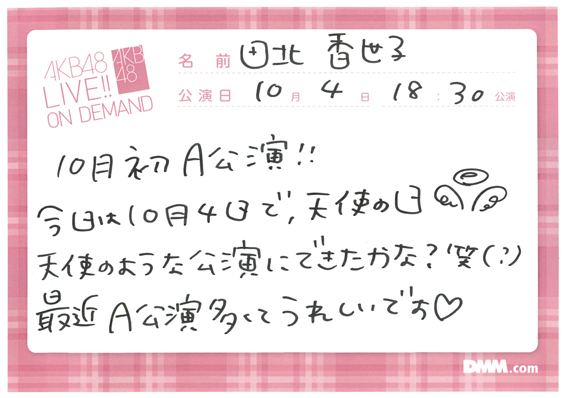 AKB48
LIVE!!
ON DEMAND
AKB
48
名前 田北 香世子
公演日 10月 4日 18:30公演
10月初A公演!!
今日は10月4日で、天使の日
天使のような公演にできたかな?笑(?)
最近A公演多くてうれしいですっ♡
DMM.com